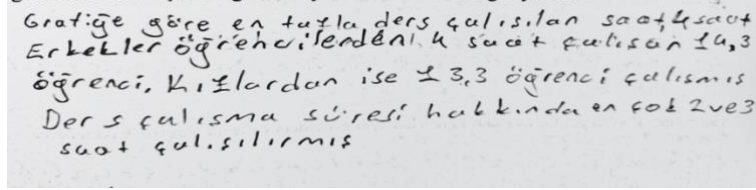 Grafiğe göre en fazla ders çalışılan saat, 4 saat
Erkekler öğrencilerden 4 saat çalışan 14,3
öğrenci, Kızlardan ise 13,3 öğrenci çalışmış
Ders çalışma süresi hakkında en çok 2 ve 3
saat çalışılırmış